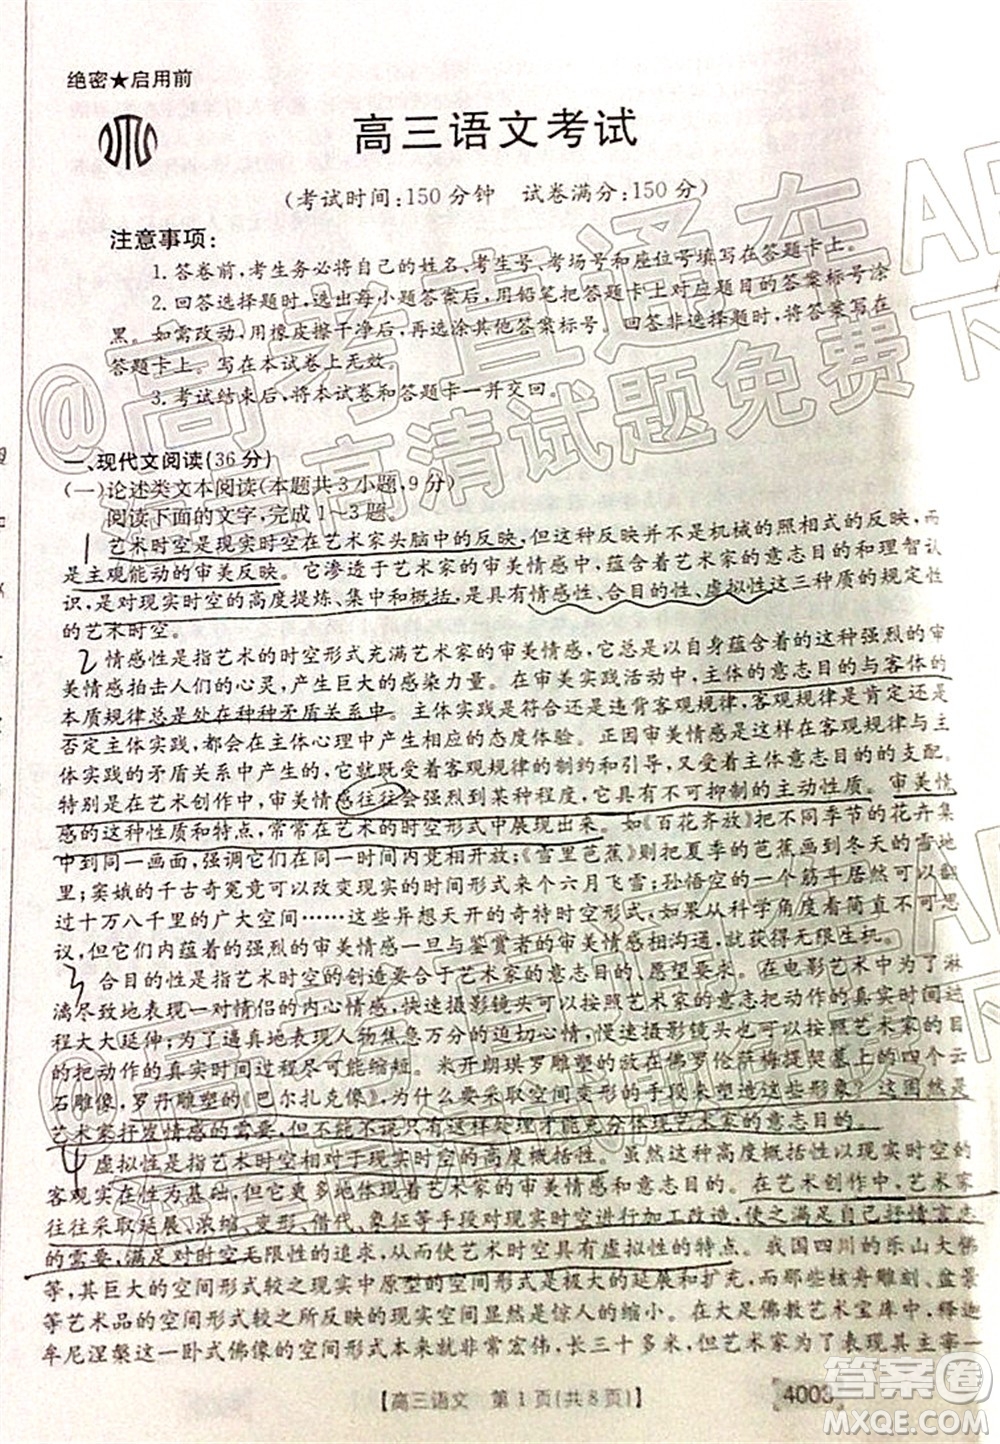 绝密★启用前
高三语文考试
(考试时间:150分钟 试卷满分:150分)
注意事项:
1.答卷前,考生务必将自己的姓名、考生号、考场号和座位号填写在答题卡上。
2.回答选择题时,选出每小题答案后,用铅笔把答题卡上对应题目的答案标号涂
黑。如需改动,用橡皮擦干净后,再选涂其他答案标号。回答非选择题时,将答案写在
答题卡上。写在本试卷上无效。
3.考试结束后,将本试卷和答题卡一并交回。
一、现代文阅读(36分)
(一)论述类文本阅读(本题共3小题,9分)
阅读下面的文字,完成1~3题。
艺术时空是现实时空在艺术家头脑中的反映,但这种反映并不是机械的照相式的反映,而
是主观能动的审美反映。它渗透于艺术家的审美情感中,蕴含着艺术家的意志目的和理智认
识,是对现实时空的高度提炼、集中和概括,是具有情感性、合目的性、虚拟性这三种质的规定性
的艺术时空。
情感性是指艺术的时空形式充满艺术家的审美情感,它总是以自身蕴含着的这种强烈的审
美情感拍击人们的心灵,产生巨大的感染力量。在审美实践活动中,主体的意志目的与客体的
本质规律总是处在种种矛盾关系中。主体实践是符合还是违背客观规律,客观规律是肯定还是
否定主体实践,都会在主体心理中产生相应的态度体验。正因审美情感是在客观规律与主
体实践的矛盾关系中产生的,所以它既受着客观规律的制约和引导,又受着主观意志目的的支配。
特别是在艺术创作中,审美情感往往会强烈到某种程度,它具有不可抑制的主动性质。审美情
感的这种性质和特点,常常在艺术的时空形式中展现出来。如《百花齐放》把不同季节的花卉集
中到同一画面,强调它们在同一时间内竞相开放;《雪里芭蕉》则把夏季的芭蕉画到冬天的雪地
里;窦娥的千古奇冤竟可以改变现实的时间形式来个六月飞雪;孙悟空的一个筋斗居然可翻
过十万八千里的广大空间……这些异想天开的奇特时空形式,尽管从科学角度看简直不可思
议,但它们内蕴着的强烈的审美情感一旦与鉴赏者的审美情感相沟通,就获得无限生机。
合目的性是指艺术时空的创造要合于艺术家的意志目的、愿望要求。在电影艺术中,为了淋
漓尽致地表现一对情侣的内心情感,快速摄影镜头可以按照艺术家的目的把动作的真实时间过
程大大延伸;为了逼真地表现人物焦急万分的迫切心情,慢速摄影镜头可以按照艺术家的目
的把动作的真实时间过程尽可能缩短。米开朗琪罗雕塑的放在佛罗伦萨梅提契墓上的四个云
石雕像,罗丹雕塑的《巴尔扎克像》,为什么要采取夸张变形的手段处理这些形象?这固然是
艺术家抒发情感的需要,但不能不说只有这样处理才能充分体现艺术家的意志目的。
虚拟性是指艺术时空相对于现实时空的高度概括性。虽然这种高度概括性以现实时空的
客观实在性为基础,但它更多地体现着艺术家的审美情感和意志目的。在艺术创作中,艺术家
往往采取延展、浓缩、变形、借代、象征等手段对现实时空进行加工改造,使之满足自己抒情言志
的需要,满足对时空无限性的追求,从而使艺术时空具有虚拟的特点。我国四川的乐山大佛
等,其巨大的空间形式较之现实中原型的空间形式是极大的延展和扩充,而核舟雕刻、盆景
等艺术品的空间形式较之所反映的现实空间显然是惊人的缩小。在大足佛教艺术宝库中,释迦
牟尼涅槃这一卧式佛像的空间形式本来就非常宏伟,长三十多米,然而,为了表现佛祖的
【高三语文 第1页(共8页)】
4003
答案圈
MXQE.COM